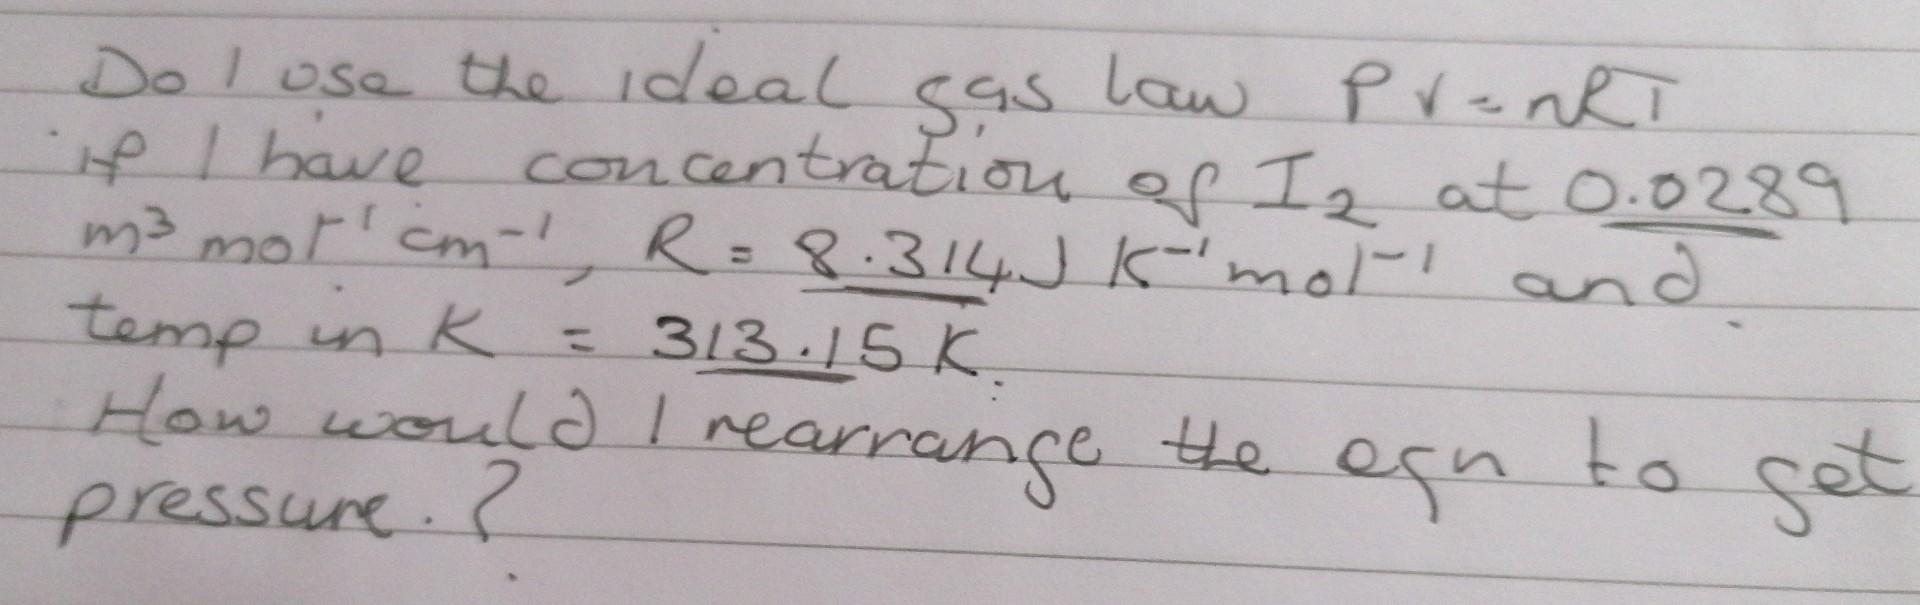 Do I use the ideal gas law PV=nRT
if I have concentration of I2 at 0.0289
m³ mol⁻¹ cm⁻¹, R = 8.314J K⁻¹ mol⁻¹ and
temp in K = 313.15 K.
How would I rearrange the eqn to get
pressure.?